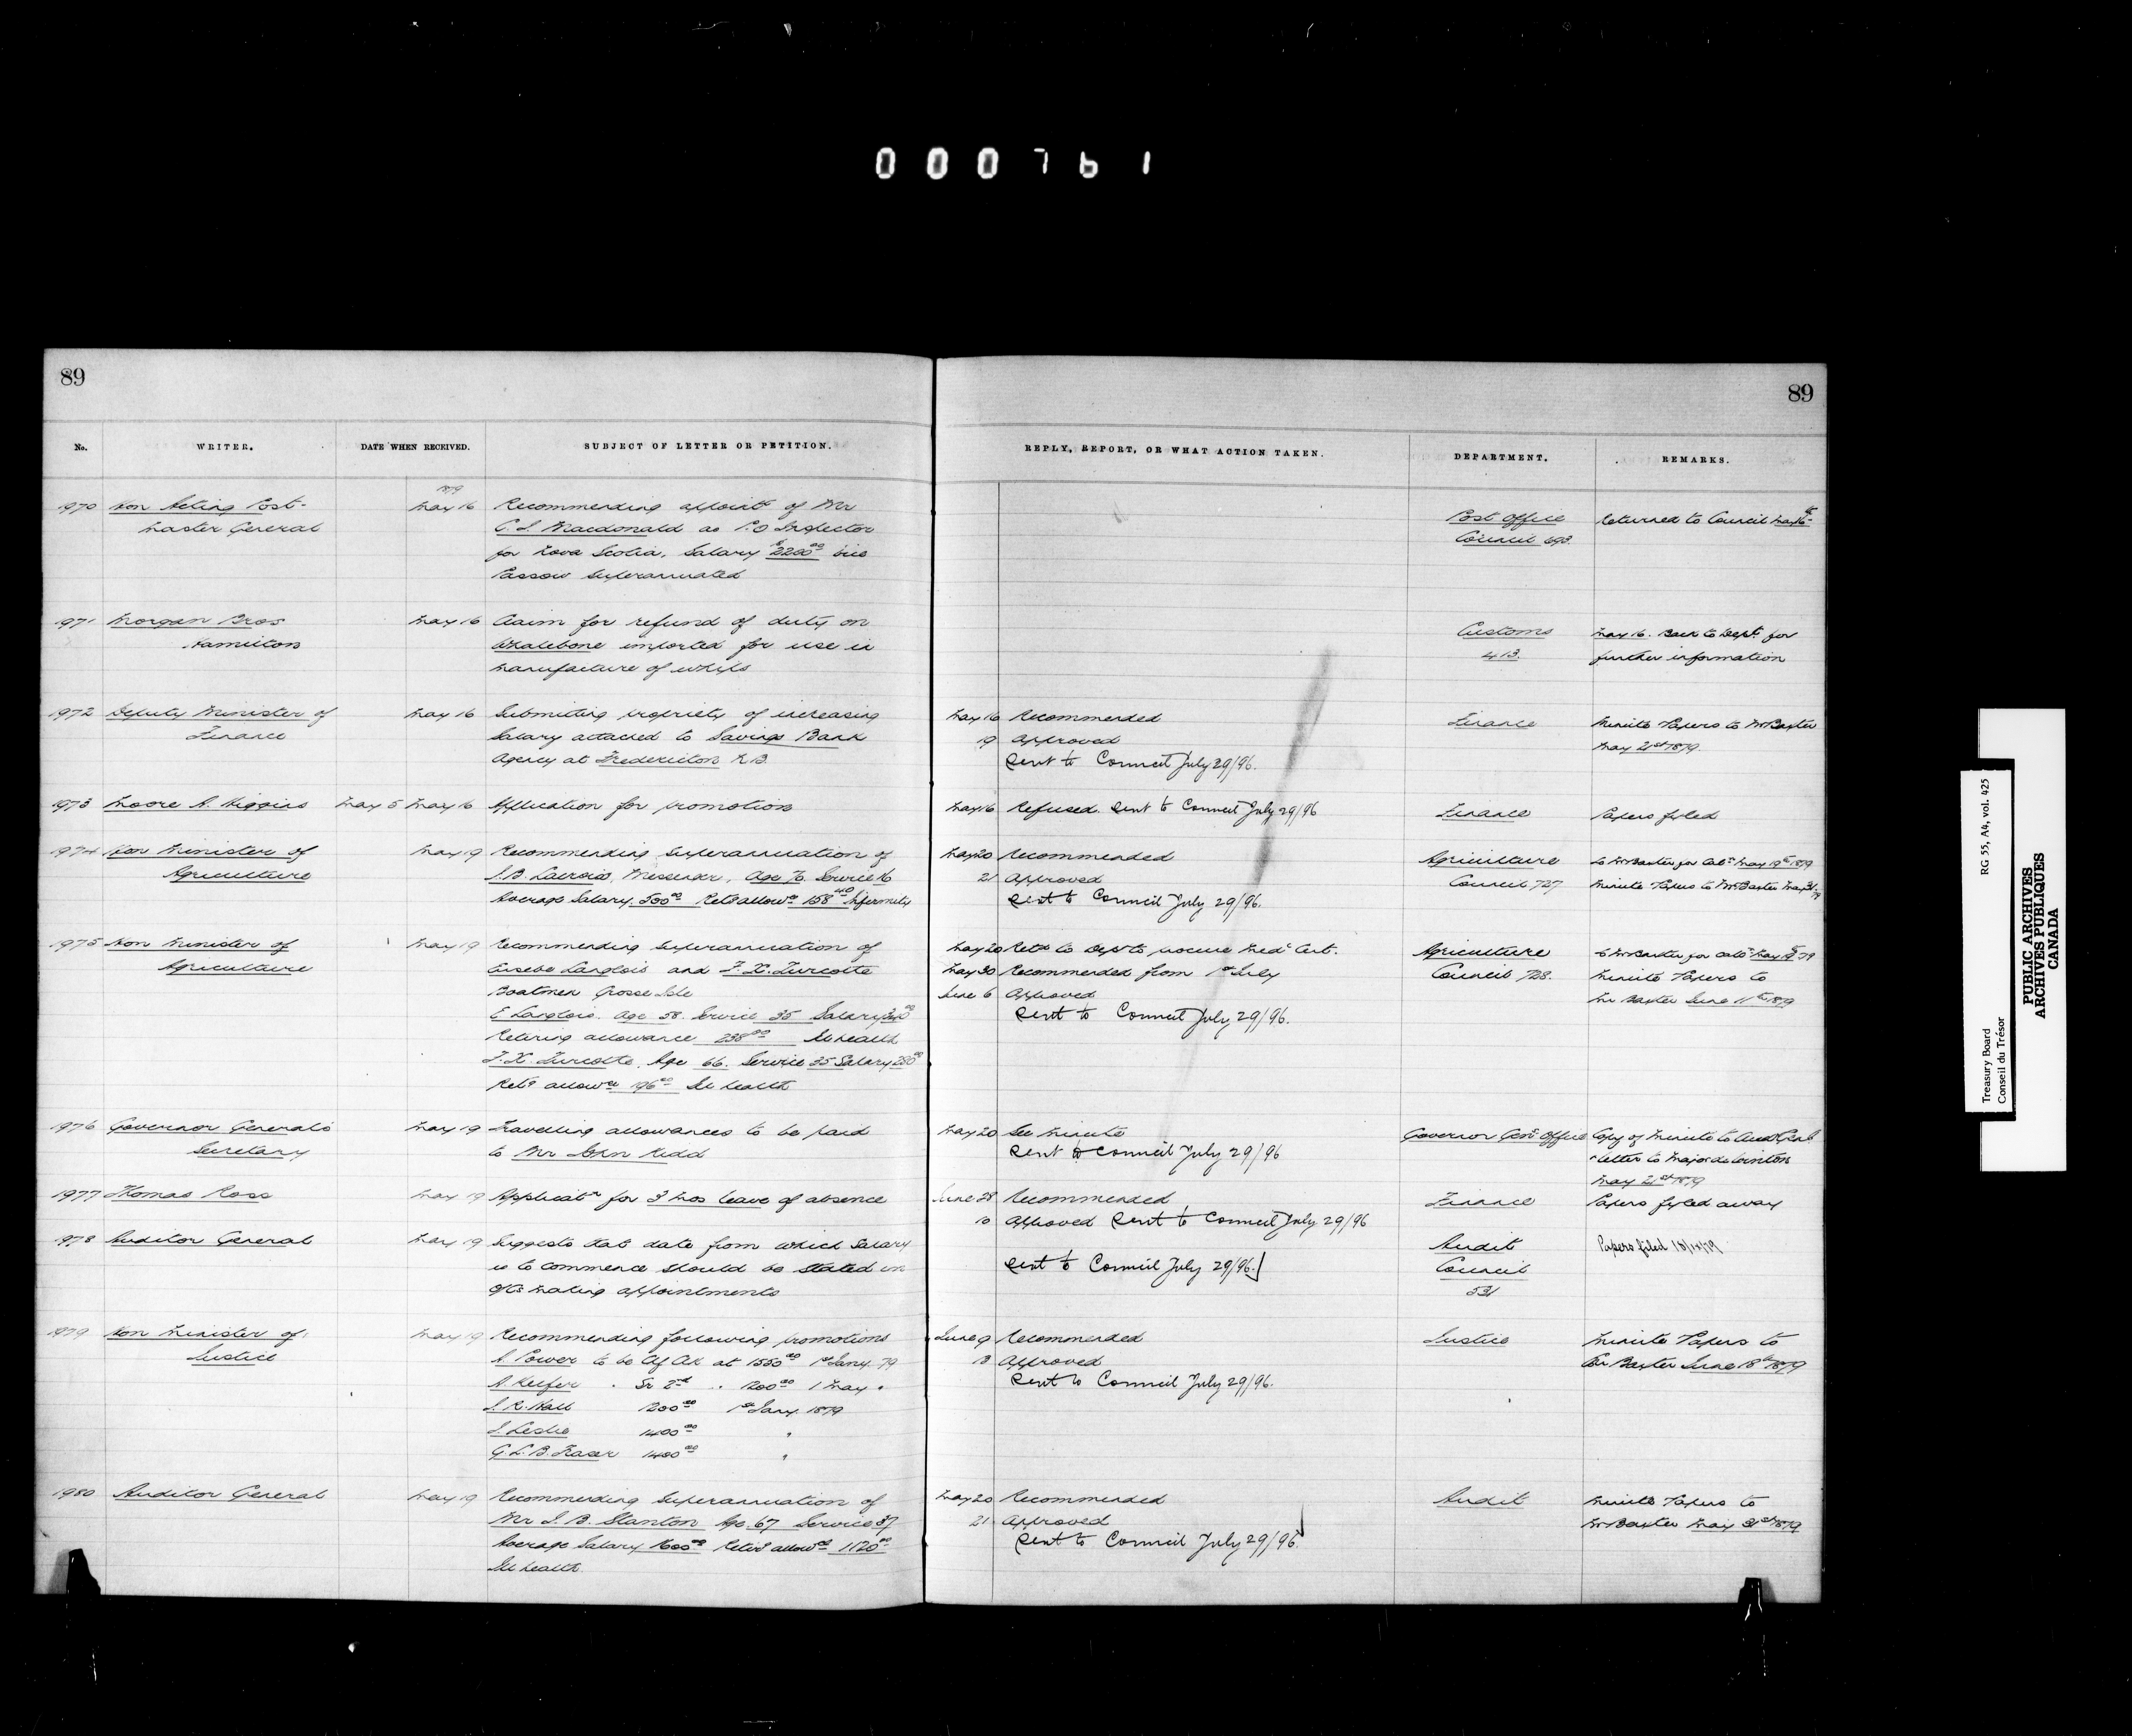 000761
89
No.
WRITER.
DATE WHEN RECEIVED.
SUBJECT OF LETTER OR PETITION.
1879
1970 Hon Acting Post-
master General
May 16
Recommending appoint of Mr
C J Macdonald as P.O Inspector
for Nova Scotia, Salary $2200 00 vice
Passow superannuated
1971 Morgan Bros
Hamilton
May 16
Claim for refund of duty on
Whalebone imported for use in
manufacture of whips
1972 Deputy Minister of
Finance
May 16
Submitting propriety of increasing
Salary attached to Savings Bank
Agency at Fredericton N.B.
1973 Moore A. Higgins May 5 May 16 Application for promotion
1974 Hon Minister of
Agriculture
May 19
Recommending superannuation of
J.B. Lacroix, Messenger, Age 70. Service 16
Average Salary 500 00 Ret allow ce 158 40 Infirmity
1975 Hon Minister of
Agriculture
May 19
Recommending superannuation of
Eusebe Langlois and F. X. Turcotte
Boatmen Grosse Isle
E Langlois. Age 58. Service 35 Salary 340 00
Retiring allowance 238 00 Ill health
F. X. Turcotte, Age 66. Service 35 Salary 280 00
Ret g allow ce 196 00 Ill health
1976 Governor Generals
Secretary
May 19
Travelling allowances to be paid
to Mr John Kidd
1977 Thomas Ross May 19 Applicat n for 3 mos leave of absence
1978 Auditor General May 19 Suggests that date from which Salary
is to commence should be stated in
O/Cs making appointments
1979 Hon Minister of
Justice
May 19
Recommending following promotions
A. Power to be Cf Clk at 1550 00 1st Jany. 79
A. Keefer " Sr 2nd " 1200 00 1 May "
J. R. Hall 1200 00 1st Jany. 1879
J. Leslie 1400 00 "
G. L. B. Fraser 1400 00 "
1980 Auditor General May 19 Recommending superannuation of
Mr J. B. Stanton Age 67 Service 37
Average Salary 1600 00 Retir g allow ce 1120 00
Ill health
89
REPLY, REPORT, OR WHAT ACTION TAKEN.
DEPARTMENT.
REMARKS.
Post Office
Council 693.
Returned to Council May 16 th
Customs
413.
May 16. Back to Dept. for
further information
May 16 Recommended
19 Approved
Sent to Council July 29/96.
Finance
Minute Papers to Mr Baxter
May 21st 1879.
May 16 Refused. Sent to Council July 29/96
Finance
Papers fyled
May 20 Recommended
21 Approved
Sent to Council July 29/96.
Agriculture
Council 727
to Mr Baxter for Calc n May 19th 1879
Minute Papers to Mr Baxter May 21. 79
May 20 Ret d to Dept to procure Med l Cert.
May 30 Recommended from 1st July
June 6 Approved
Sent to Council July 29/96.
Agriculture
Council 728.
to Mr Baxter for Calc n May 19 79
Minute Papers to
Mr Baxter June 11th 1879
May 20 See minute
Sent to Council July 29/96
Governor Genl Office
Copy of Minute to Aud Genl
letter to Major de Winton
May 21st 1879
June 28 Recommended
10 Approved Sent to Council July 29/96
Finance
Papers fyled away
Sent to Council July 29/96.
Audit
Council
531
Papers filed
June 9 Recommended
13 Approved
Sent to Council July 29/96.
Justice
Minute Papers to
Mr Baxter June 18th 1879
May 20 Recommended
21 Approved
Sent to Council July 29/96.
Audit
Minute Papers to
Mr Baxter May 21st 1879
RG 55, A4, vol. 425
Treasury Board
Conseil du Trésor
PUBLIC ARCHIVES
ARCHIVES PUBLIQUES
CANADA